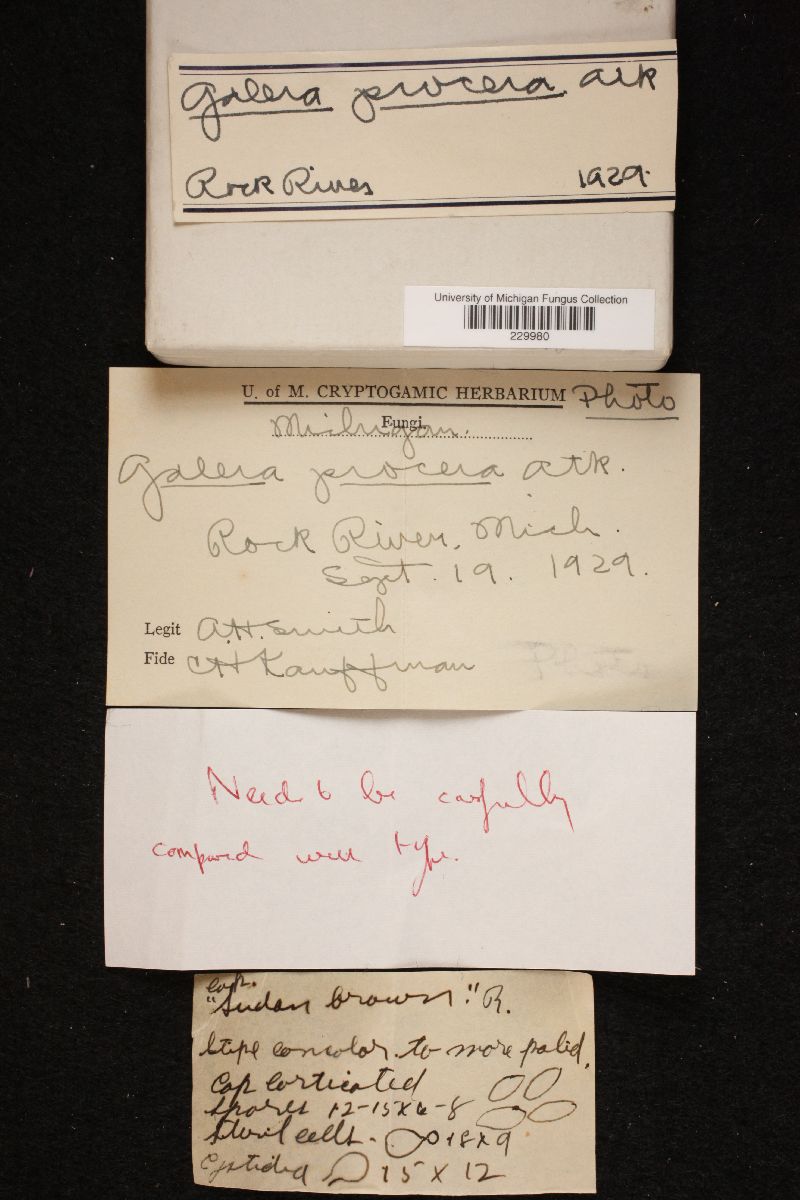 Galera procera Atk
Rock River 1929.
University of Michigan Fungus Collection
229980
U. of M. CRYPTOGAMIC HERBARIUM Photo
Fungi
Michigan.
Galera procera Atk.
Rock River, Mich.
Sept. 19. 1929.
Legit A.H. Smith
Fide CH Kauffman
Need to be carfully
compared well type.
cap.
"Sudan brown" R.
Stipe concolor to more palid.
Cap corticated
spores 12-15 x 6-8
steril cells. 18 x 9
Cystidia 15 x 12